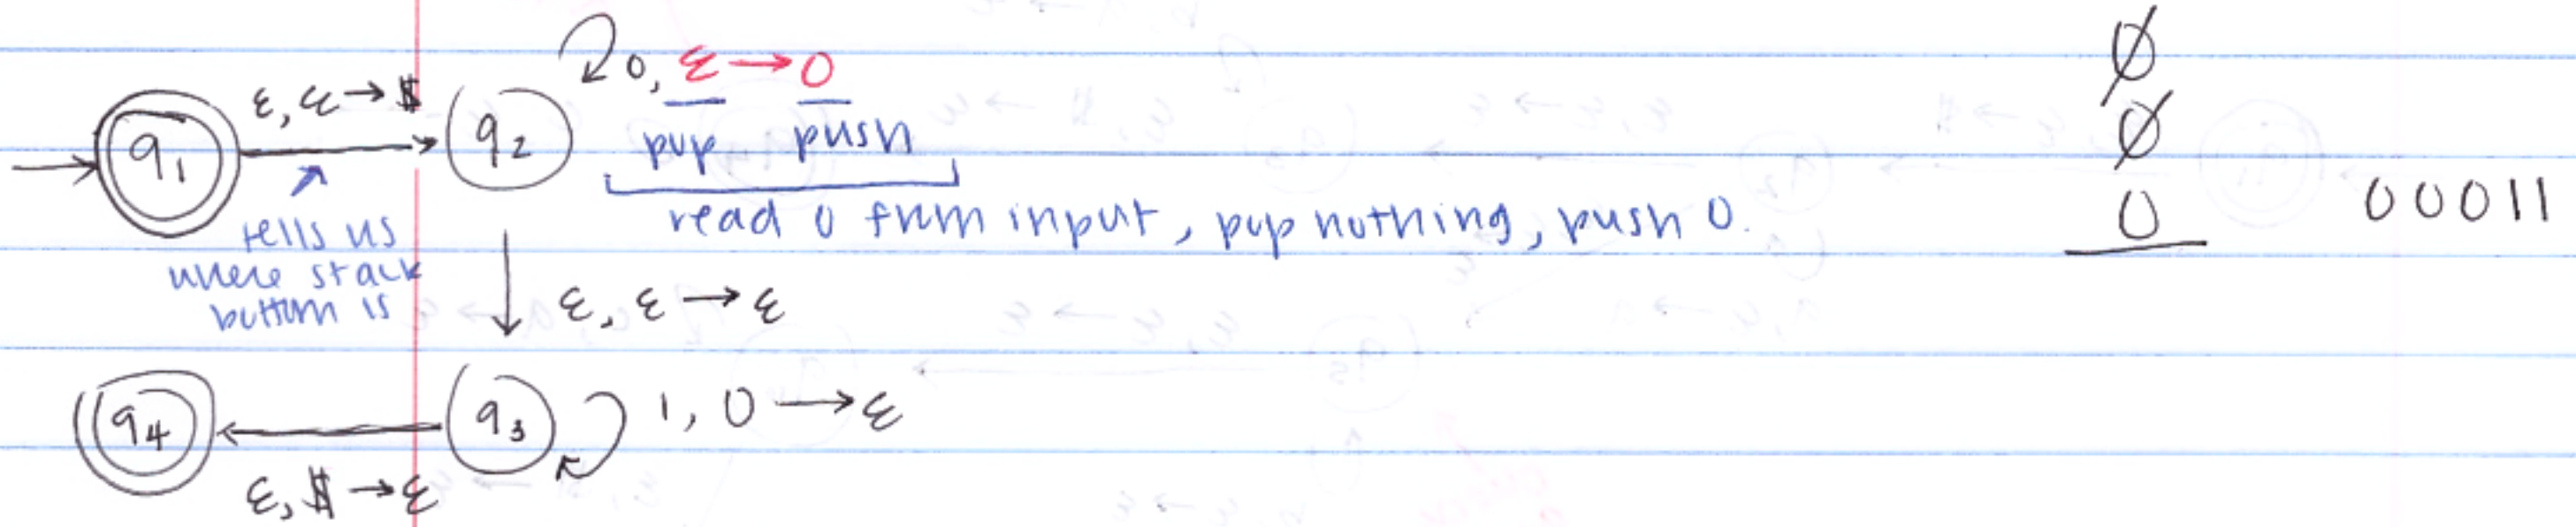 0, ε → 0
ε, ε → $
q1
q2
pop push
read 0 from input, pop nothing, push 0.
tells us
where stack
bottom is
ε, ε → ε
q4
q3
1, 0 → ε
ε, $ → ε
0
0
0
00011